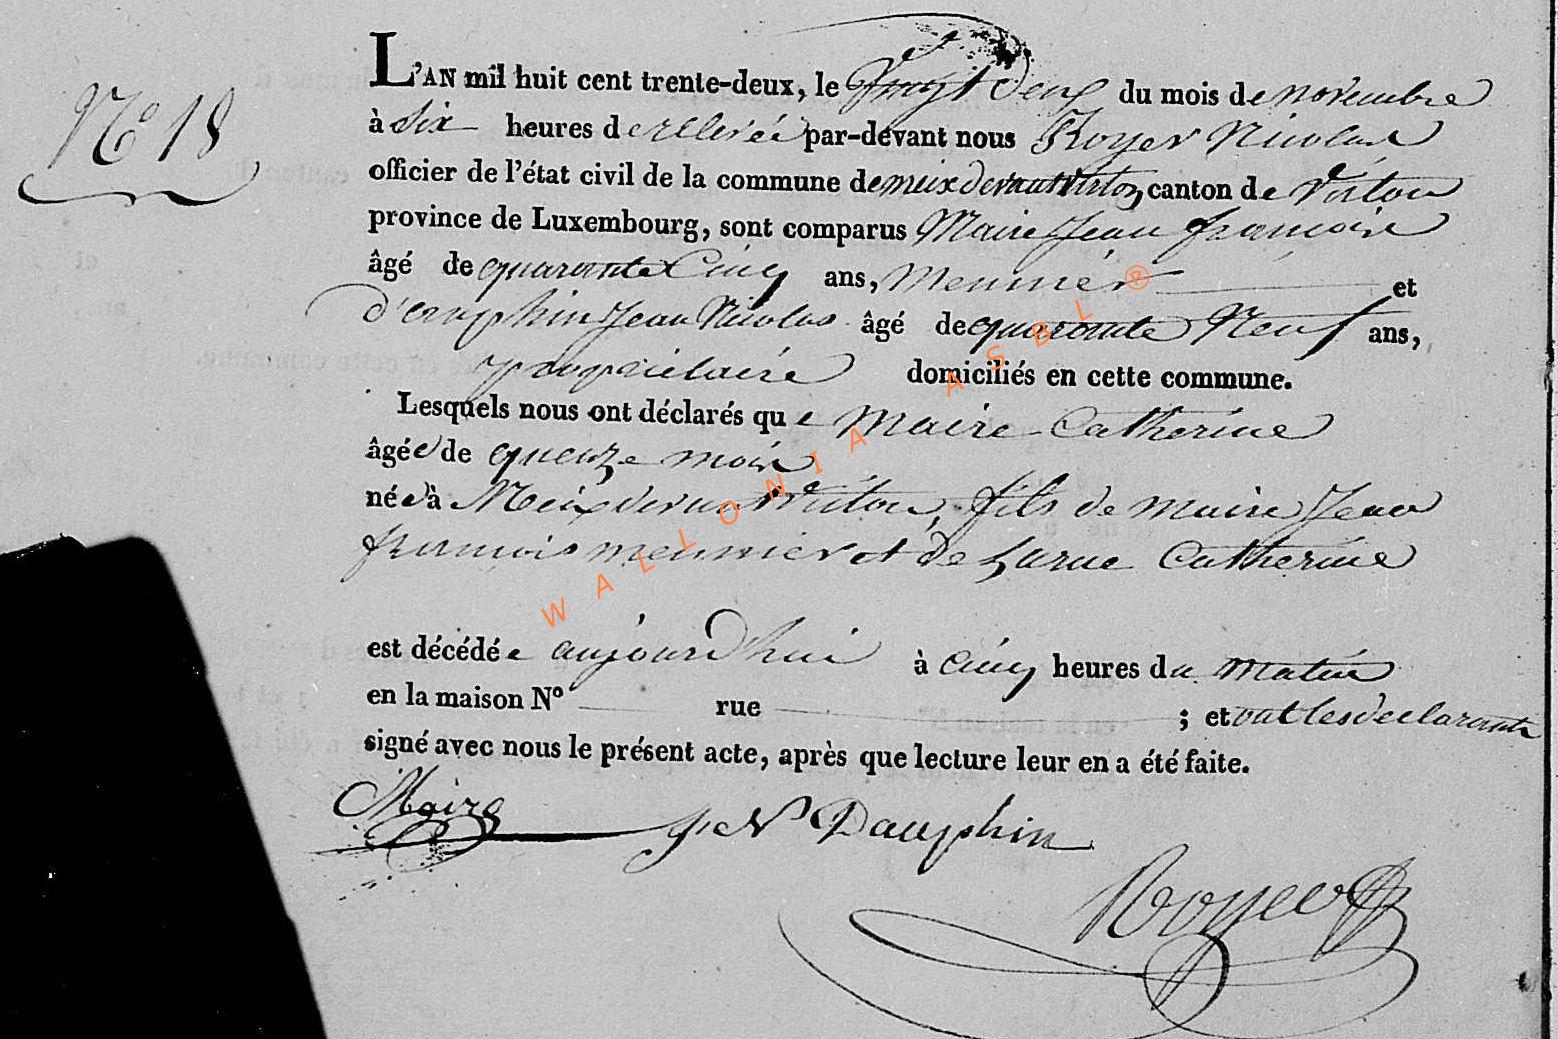 N° 18
L'AN mil huit cent trente-deux, le vingt deux du mois de novembre
à six heures de relevée par-devant nous Royer Nicolas
officier de l'état civil de la commune de meix devant virton, canton de Virton
province de Luxembourg, sont comparus Maire Jean françois
âgé de quarante Cinq ans, Meunier et
d'auphin Jean Nicolas âgé de quarante Neuf ans,
propriétaire domiciliés en cette commune.
Lesquels nous ont déclarés que Maire Catherine
âgée de quenze mois
née à Meix devant Virton, fils de maire Jean
françois meunier et de Larue Catherine
est décédée aujourd'hui à cinq heures du matin
en la maison N° rue ; et ont les declarants
signé avec nous le présent acte, après que lecture leur en a été faite.
Maire J N Dauphin
Royer
WALLONIA ASBL ®